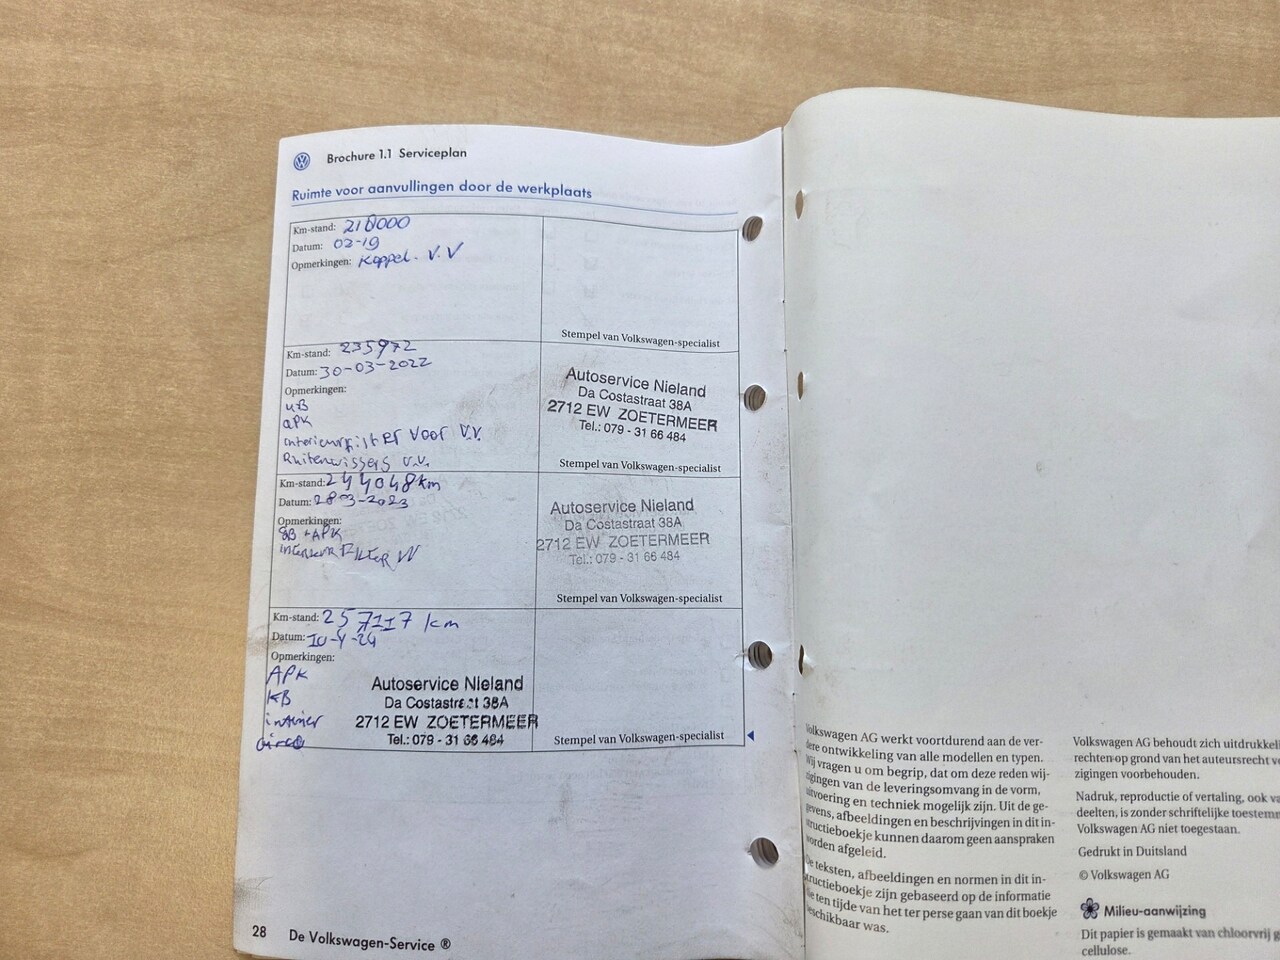 Brochure 1.1 Serviceplan
Ruimte voor aanvullingen door de werkplaats
Km-stand: 210000
Datum: 02-19
Opmerkingen: Koppel. V.V
Stempel van Volkswagen-specialist
Km-stand: 235972
Datum: 30-03-2022
Opmerkingen:
APK
interieurfilter voor V.V.
Ruitenwissers V.V.
Autoservice Nieland
Da Costastraat 38A
2712 EW ZOETERMEER
Tel.: 079 - 31 66 484
Stempel van Volkswagen-specialist
Km-stand: 244048km
Datum: 28-3-2023
Opmerkingen:
GB + APK
FILTER VV
Autoservice Nieland
Da Costastraat 38A
2712 EW ZOETERMEER
Tel.: 079 - 31 66 484
Stempel van Volkswagen-specialist
Km-stand: 257117 km
Datum: 10-4-24
Opmerkingen:
APK
KB
interier
Autoservice Nieland
Da Costastraat 38A
2712 EW ZOETERMEER
Tel.: 079 - 31 66 484
Stempel van Volkswagen-specialist
28 De Volkswagen-Service ®
Volkswagen AG werkt voortdurend aan de ver-
dere ontwikkeling van alle modellen en typen.
Wij vragen u om begrip, dat om deze reden wij-
zigingen van de leveringsomvang in de vorm,
uitvoering en techniek mogelijk zijn. Uit de ge-
gevens, afbeeldingen en beschrijvingen in dit in-
structieboekje kunnen daarom geen aanspraken
worden afgeleid.
De teksten, afbeeldingen en normen in dit in-
structieboekje zijn gebaseerd op de informatie
die ten tijde van het ter perse gaan van dit boekje
beschikbaar was.
Volkswagen AG behoudt zich uitdrukkeli
rechten op grond van het auteursrecht v
zigingen voorbehouden.
Nadruk, reproductie of vertaling, ook va
deelten, is zonder schriftelijke toestemm
Volkswagen AG niet toegestaan.
Gedrukt in Duitsland
© Volkswagen AG
Milieu-aanwijzing
Dit papier is gemaakt van chloorvrij g
cellulose.